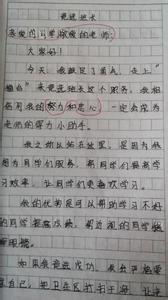 竞选班长
亲爱的同学敬爱的老师:
大家好!
今天,我鼓足了勇气,走上"
"来竞选班长这个职务。我相
信用我的努力和忠心,一定会成为
老师的得力小助手。
我之所以站在这里,是因为我
为同学们服务,帮同学们提高学
习效率,让同学们更喜欢学习。
我的优势是可以帮助学习不好
的同学提高成绩,
如果我竞选成功,我会严格要
求自己,